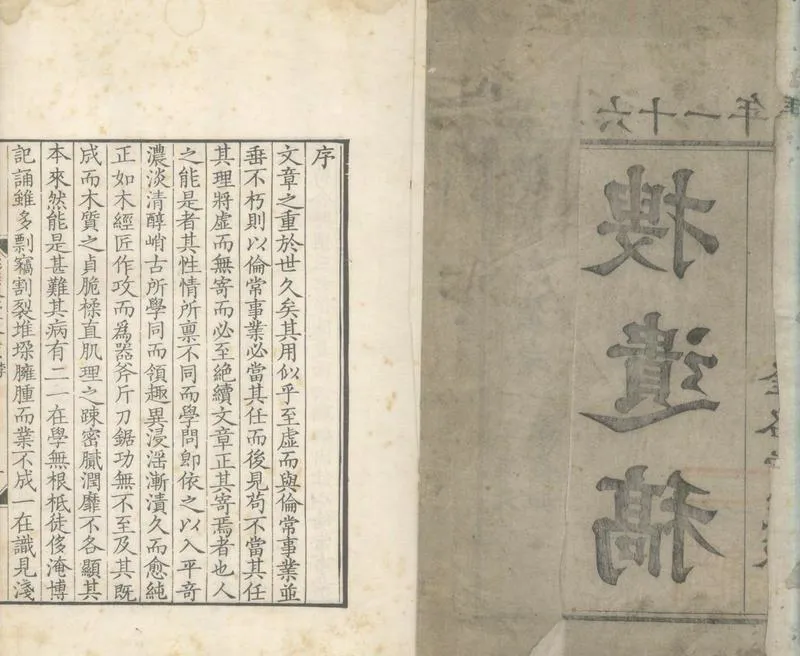 六十一年
搜遺稿
序
文章之重於世久矣其用似乎至虛而與倫常事業並
垂不朽則以倫常事業必當其任而後見苟不當其任
其理將虛而無寄而必至絶續文章正其寄焉者也人
之能是者其性情所禀不同而學問卽依之以入平竒
濃淡清醇峭古所學同而領趣異浸淫漸漬久而愈純
正如木經匠作攻而為器斧斤刀鋸功無不至及其既
成而木質之貞脆楺直肌理之疎密膩潤靡不各顯其
本來然能是甚難其病有二一在學無根柢徒侈淹博
記誦雖多剽竊割裂堆垜臃腫而業不成一在識見淺